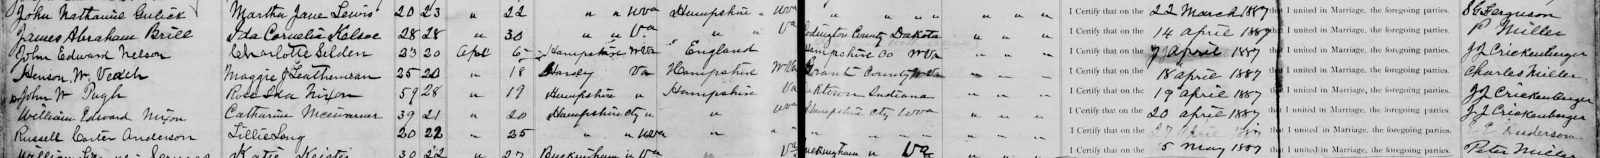 John Nathaniel Gulick Martha Jane Lewis 20 23 " 22 " " Wva Hampshire " Wva " " " " " " " I Certify that on the 22 March 1887 that I united in Marriage, the foregoing parties. Ferguson
James Abraham Brill Ida Cornelia Kelsoe 28 28 " 30 " " Va " " Va Codington County Dakota " " " I Certify that on the 14 April 1887 that I united in Marriage, the foregoing parties. P Miller
John Edward Nelson Charlotte Selden 23 20 Apl 6 Hampshire WVa England Hampshire Co WVa " " " I Certify that on the 7 April 1887 that I united in Marriage, the foregoing parties. J J Crickenberger
Henson W. Veach Maggie J Leatherman 25 20 " 18 Hardy Va Hampshire WVa Grant County W Va " " " I Certify that on the 18 April 1887 that I united in Marriage, the foregoing parties. Charles Miller
John W Pugh Rose Ida Nixon 59 28 " 19 Hampshire " Hampshire Va Indiana " " " I Certify that on the 19 April 1887 that I united in Marriage, the foregoing parties. J J Crickenberger
William Edward Nixon Catharine 39 21 " 20 Hampshire Cty " " Wva Hampshire Cty Wva " " " I Certify that on the 20 April 1887 that I united in Marriage, the foregoing parties. J J Crickenberger
Russell Carter Anderson Lillie Long 20 22 " 25 " " Wva " " " " " " " " I Certify that on the 27 April 1887 that I united in Marriage, the foregoing parties. Anderson
William Katie 30 22 " 27 Buckingham " Va Va Buckingham " Va " " " I Certify that on the 5 May 1887 that I united in Marriage, the foregoing parties. Peter Miller